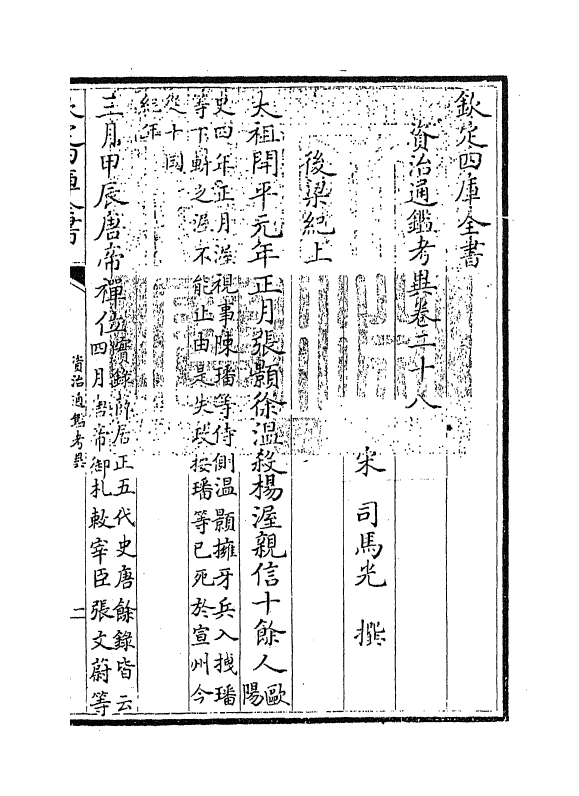 欽定四庫全書
資治通鑑考異卷二十八
宋 司馬光 撰
後梁紀上
太祖開平元年正月張顥徐温殺楊渥親信十餘人歐陽
史四年正月渥視事陳璠等侍側温顥擁牙兵入拽璠
等下斬之渥不能止由是失政按璠等已死於宣州今
從十國
紀年
三月甲辰唐帝禪位實録薛居正五代史唐餘録皆云
四月唐帝御札敕宰臣張文蔚等
欽定四庫全書
資治通鑑考異